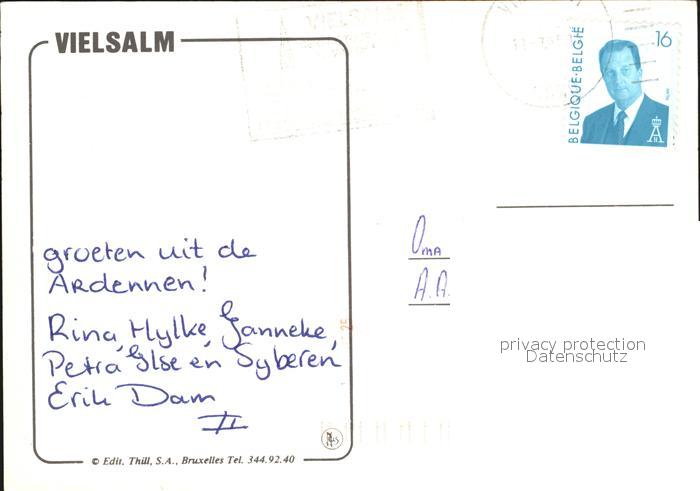 VIELSALM
VIELSALM
16
BELGIQUE-BELGIË
groeten uit de
Ardennen!
Rina, Hylke, Janneke,
Petra, Ilse en Syberen
Erik Dam
II
Oma
A.A.
privacy protection
Datenschutz
© Edit. Thill, S.A., Bruxelles Tel. 344.92.40